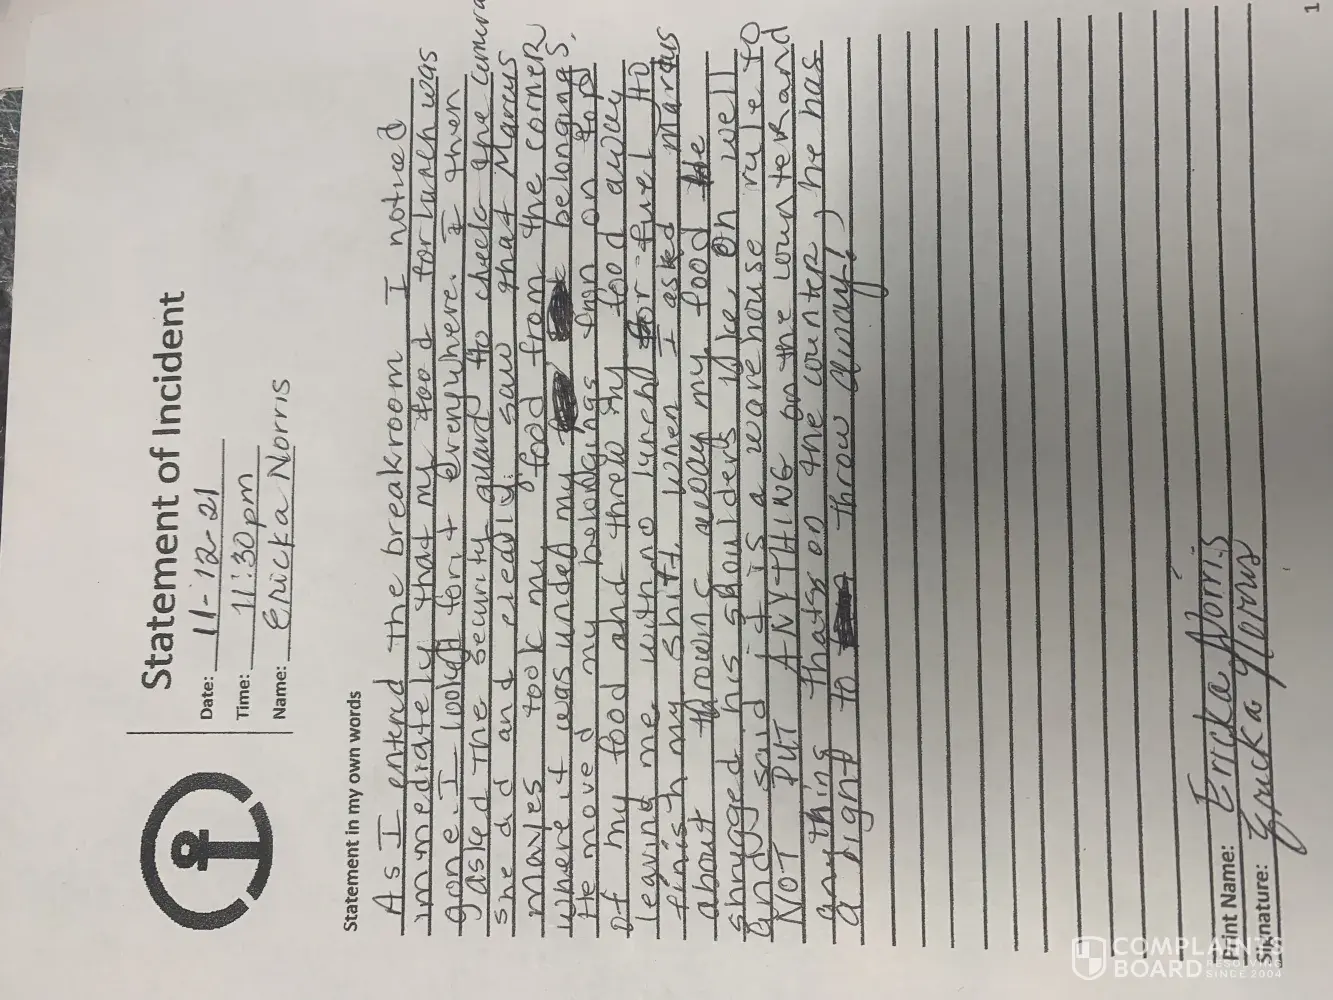 Statement of Incident
Date: 11-12-21
Time: 11:30pm
Name: Ericka Norris
Statement in my own words
As I enterd the breakroom I noticed
immediately that my food for lunch was
gone. I looked for it everywhere. I then
asked the security guard to check the camera
she did and clearly saw that Marcus
Mayes took my food from the corner
where it was under my belongings,
He moved my belongings from on top
of my food and threw my food away
leaving me with no lunch or fuel to
finish my shift. when I asked Marcus
about throwing away my food He
shrugged his shoulders like oh well
and said it is a warehouse rule to
NOT PUT ANYTHING on the counter and
anything thats on the counter, he has
a right to throw away!
Print Name: Ericka Norris
Signature: Ericka Norris
1
COMPLAINTS
BOARD RESOLVING
SINCE 2004